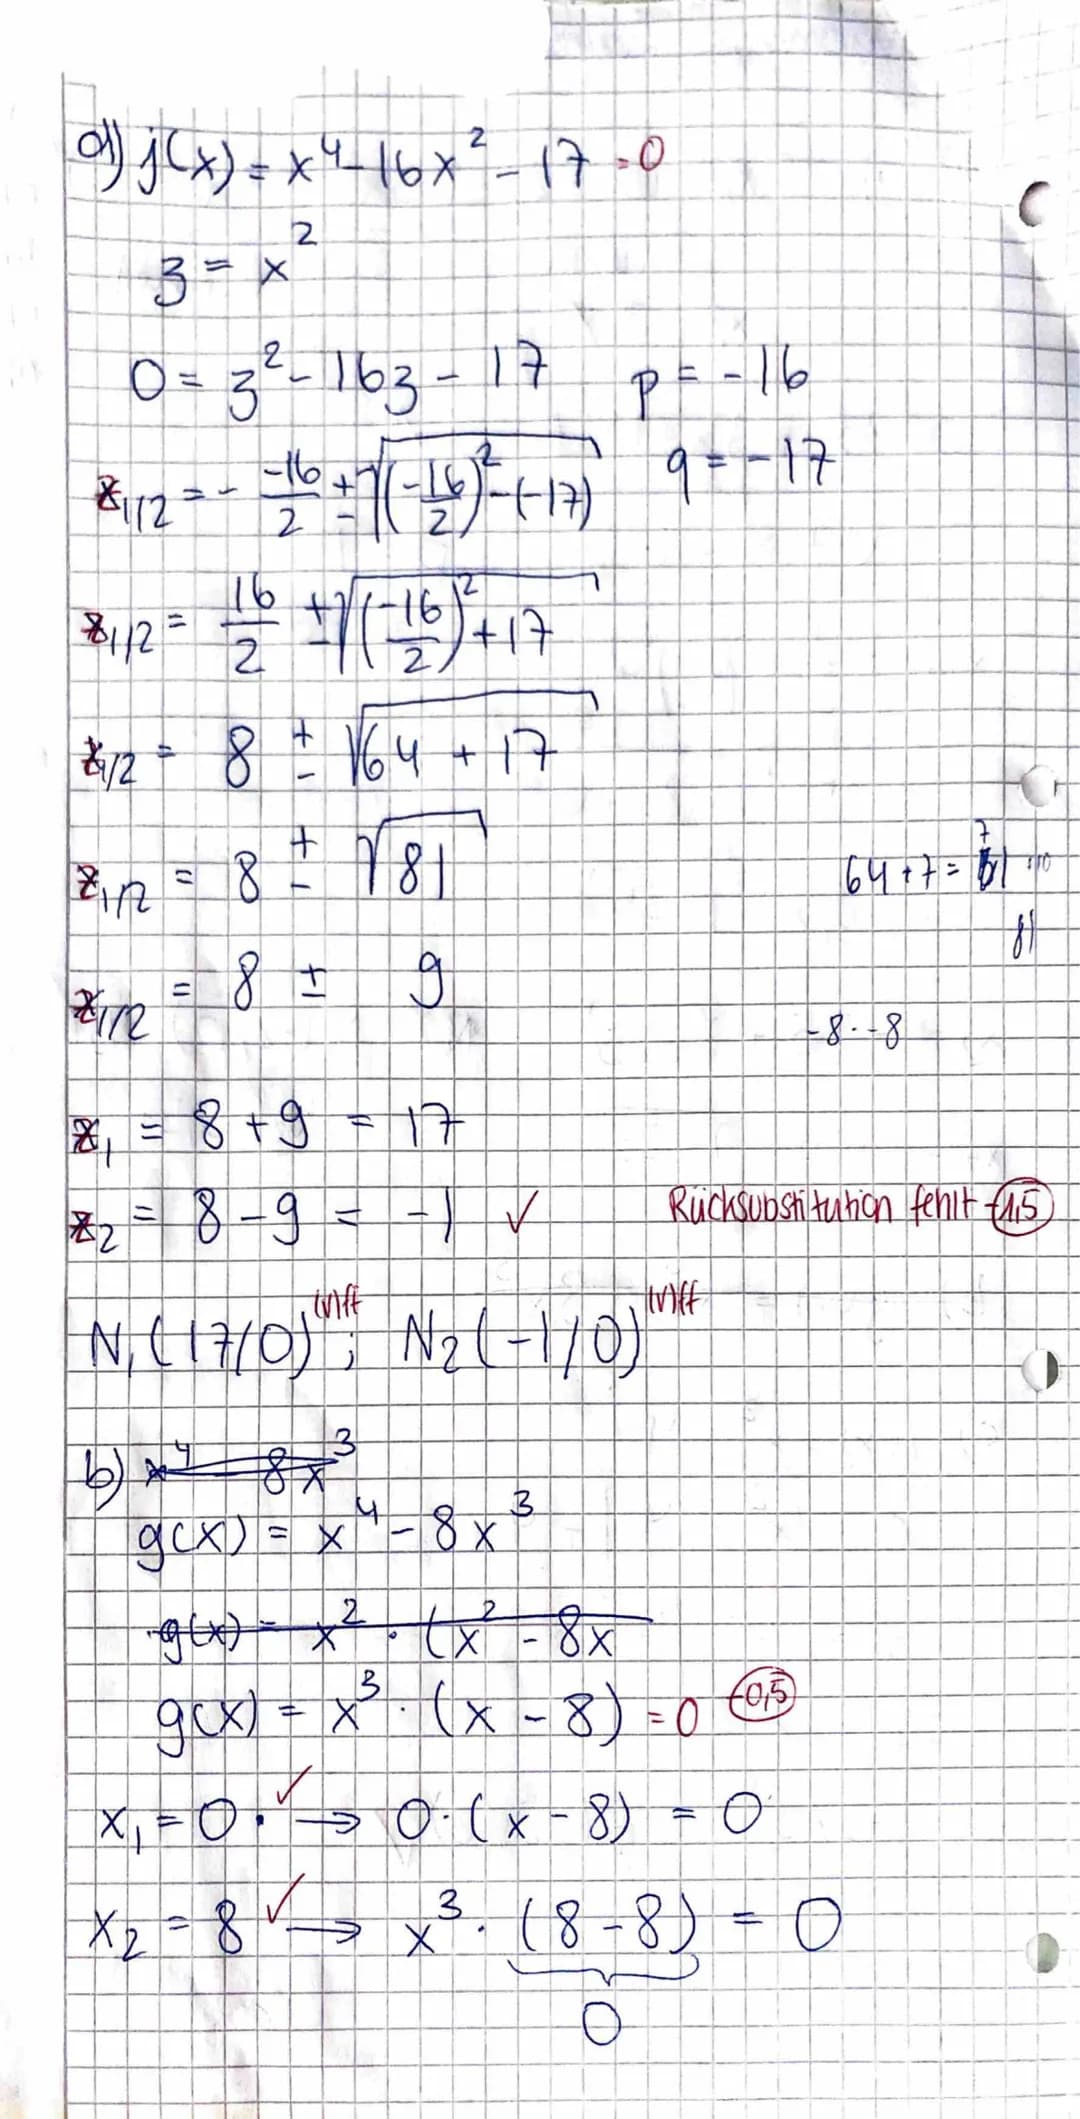 d) j(x) = x⁴ - 16x² - 17 = 0
z = x²
0 = z² - 16z - 17 p = -16
q = -17
z₁/₂ = - -16/2 ± √((-16/2)² - (-17))
z₁/₂ = 16/2 ± √((-16/2)² + 17)
z₁/₂ = 8 ± √(64 + 17)
z₁/₂ = 8 ± √81
64 + 7 = 71
81
z₁/₂ = 8 ± 9
-8 · -8
z₁ = 8 + 9 = 17
z₂ = 8 - 9 = -1 ✓ Rücksubstitution fehlt -1,5
N₁(17/0) (v)ff ; N₂(-1/0) (v)ff
b) x⁴ - 8x³
g(x) = x⁴ - 8x³
g(x) = x² · (x² - 8x
g(x) = x³ · (x - 8) = 0 -0,5
x₁ = 0 · ✓ → 0 · (x - 8) = 0
x₂ = 8 ✓ → x³ · (8 - 8) = 0
0